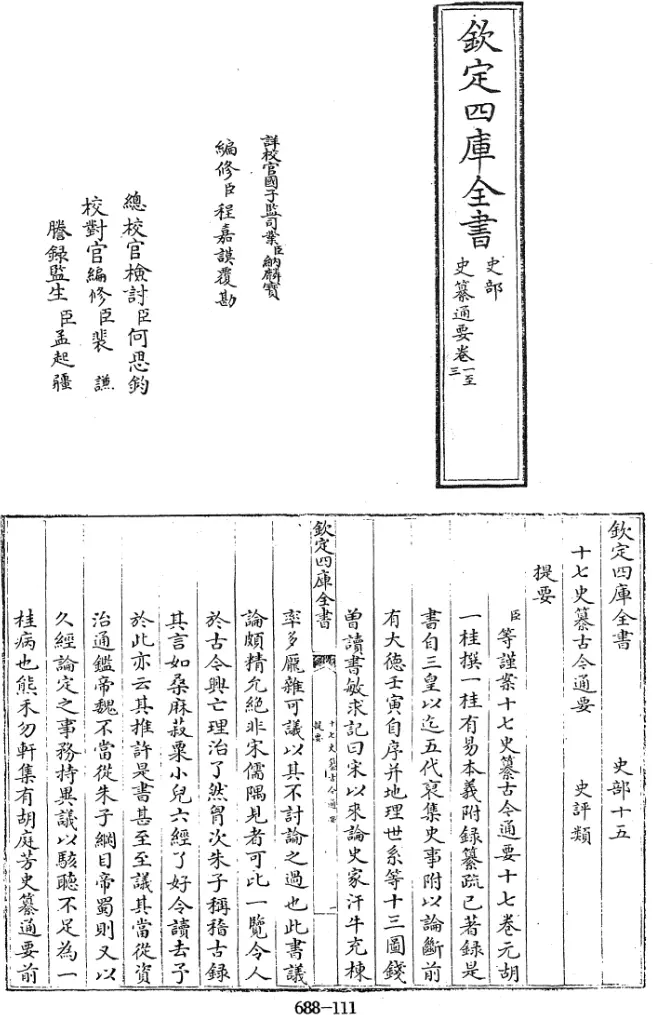 欽定四庫全書
史部
史纂通要卷一至三
詳校官國子監司業臣納麟寶
編修臣程嘉謨覆勘
總校官檢討臣何思鈞
校對官編修臣裴謙
謄錄監生臣孟起疆
欽定四庫全書 史部十五
十七史纂古今通要 史評類
提要
臣等謹案十七史纂古今通要十七卷元胡
一桂撰一桂有易本義附録纂疏已著録是
書自三皇以迄五代裒集史事附以論斷前
有大德壬寅自序并地理世系等十三圖錢
曽讀書敏求記曰宋以來論史家汗牛充棟
欽定四庫全書
十七史纂古今通要
提要
率多龎雜可議以其不討論之過也此書議
論頗精允絶非宋儒隅見者可比一覽令人
於古今興亡理治了然胷次朱子稱稽古録
其言如桑麻菽粟小兒六經了好令讀去予
於此亦云其推許是書甚至至議其當從資
治通鑑帝魏不當從朱子綱目帝蜀則又以
久經論定之事務持異議以駭聽不足為一
桂病也熊禾勿軒集有胡庭芳史纂通要前
688-111